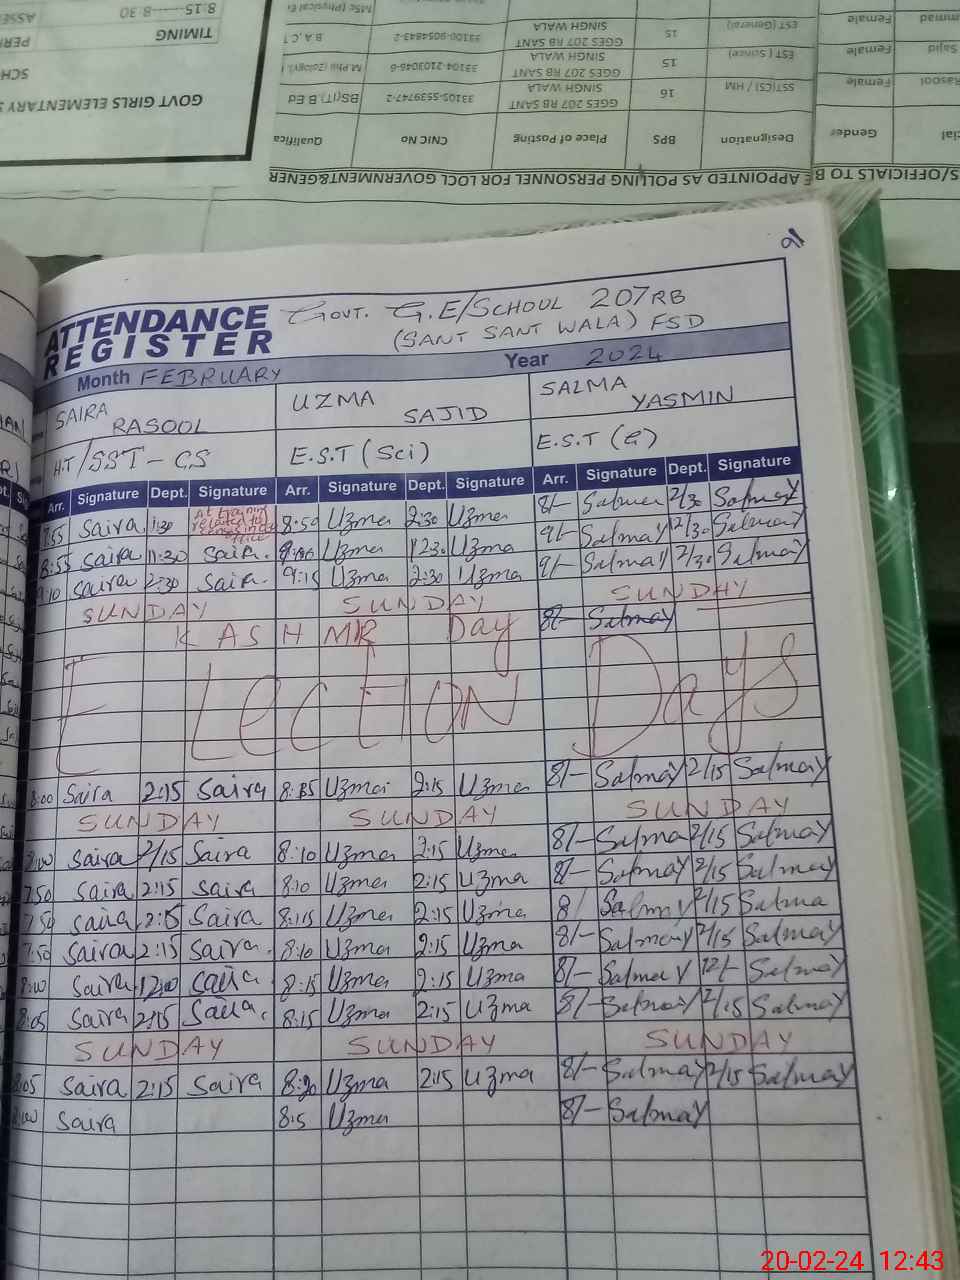 MSc (Physical
EST (General)
15
GGES 207 RB SANT
SINGH WALA
33100-9054843-2
B A, C.T
EST (Scince)
15
GGES 207 RB SANT
SINGH WALA
33104-2103046-6
M.Phil (Zology),
SST(CS) / HM
16
GGES 207 RB SANT
SINGH WALA
33105-5539747-2
(BS(IT) B Ed
Female
Female
Female
Sajid
Rasool
Gender
Designation
BPS
Place of Posting
CNIC No
Qualifica
S/OFFICIALS TO BE APPOINTED AS POLLING PERSONNEL FOR LOCL GOVERNMENT&GENER
8:15-------8 30
ASSE
TIMING
PERI
SCH
GOVT GIRLS ELEMENTARY
91
ATTENDANCE REGISTER
GOVT. G.E/SCHOOL 207 RB
(SANT SANT WALA) FSD
Month FEBRUARY Year 2024
SAIRA RASOOL UZMA SAJID SALMA YASMIN
H.T/SST-CS E.S.T (Sci) E.S.T (G)
Arr. Signature Dept. Signature Arr. Signature Dept. Signature Arr. Signature Dept. Signature
7:55 Saira 1:30 At training related to 8:50 Uzma 2:30 Uzma 8/- Salma 2/30 SalmaY
8:55 Saira 11:30 Saira. Uzma 12:30 Uzma 9/- SalmaY 12/30 SalmaY
9:10 Saira 2:30 Saira. 9:15 Uzma 2:30 Uzma 9/- SalmaY 2/30 SalmaY
SUNDAY SUNDAY SUNDAY
KASHMIR Day 8/- SalmaY
ELECTION Days
8:00 Saira 2:15 Saira 8:35 Uzma 2:15 Uzma 8/- SalmaY 2/15 SalmaY
SUNDAY SUNDAY SUNDAY
8:00 Saira 2/15 Saira 8:10 Uzma 2:15 Uzma 8/- Salma 2/15 SalmaY
7:50 Saira 2:15 Saira 8:10 Uzma 2:15 Uzma 8/- SalmaY 2/15 SalmaY
7:50 Saira 2:15 Saira 8:15 Uzma 2:15 Uzma 8/ SalmaY 2/15 Salma
7:50 Saira 2:15 Saira. 8:10 Uzma 2:15 Uzma 8/- SalmaY 2/15 SalmaY
8:00 Saira 12:00 Saira 8:15 Uzma 2:15 Uzma 8/- SalmaY 12/- SalmaY
8:05 Saira 2:15 Saira. 8:15 Uzma 2:15 Uzma 8/- SalmaY 2/15 SalmaY
SUNDAY SUNDAY SUNDAY
8:05 Saira 2:15 Saira 8:20 Uzma 2:15 Uzma 8/- SalmaY 2/15 SalmaY
8:00 Saira 8:5 Uzma 8/- SalmaY
20-02-24 12:43